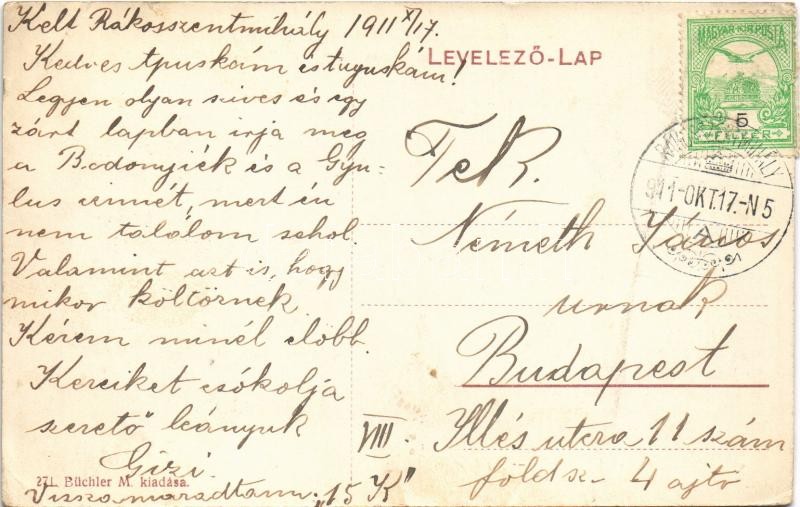 Kelt Rákosszentmihály 1911 X/17.
Kedves Apuskám és tuyuskám!
Legyen olyan szives és egy
zárt lapban irja meg
a Bodonyiék és a Gyu-
lus cimét, mert én
nem találom sehol.
Valamint azt is, hogy
mikor költörnek
Kérem minél előbb.
Kezeiket csókolja
szerető leányuk
Gizi
Visszamaradtam. „15 K"
271. Büchler M. kiadása.
LEVELEZŐ-LAP
MAGYAR KIR. POSTA
5
FILLÉR
911-OKT.17.-N5
A
Tek.
Németh János
urnak
Budapest
VIII. Illés utcza 11 szám
földsz. 4 ajtó